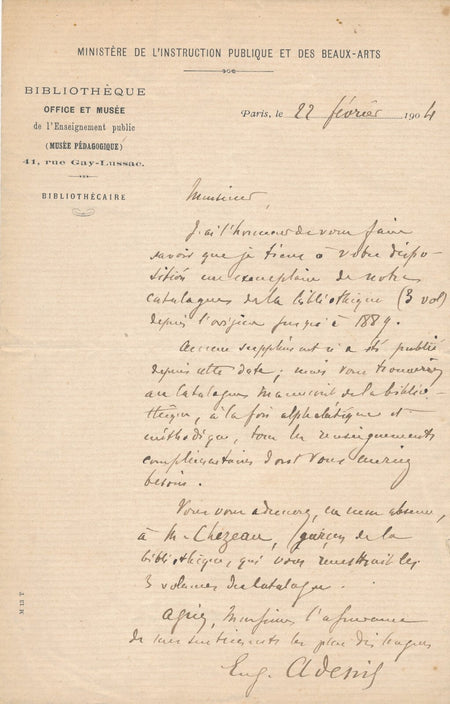 MINISTÈRE DE L'INSTRUCTION PUBLIQUE ET DES BEAUX-ARTS
BIBLIOTHÈQUE
OFFICE ET MUSÉE
de l'Enseignement public
(MUSÉE PÉDAGOGIQUE)
41, rue Gay-Lussac.
BIBLIOTHÉCAIRE
Paris, le 22 février 1904
Monsieur,
J'ai l'honneur de vous faire
savoir que je tiens à votre dispo-
sition un exemplaire de notre
catalogue de la bibliothèque (3 vol)
depuis l'origine jusqu'à 1889.
Aucun supplément n'a été publié
depuis cette date; mais vous trouverez
au Catalogue manuscrit de la biblio-
thèque, à la fois alphabétique et
méthodique, tous les renseignements
complémentaires dont vous auriez
besoin.
Vous vous adresserez, en mon absence,
à M. Chezeau, garçon de la
bibliothèque, qui vous remettrait les
3 volumes du Catalogue.
Agréez, Monsieur, l'assurance
de mes sentiments les plus distingués
Eug. Adenis
M 13 T